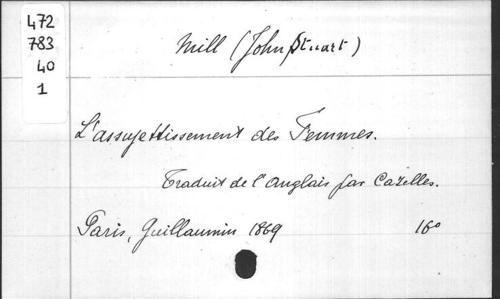 472
783
40
1
Mill (John Stuart)
L'assujettissement des Femmes.
Traduit de l'Anglais par Cazelles.
Paris, Guillaumin 1869 16°